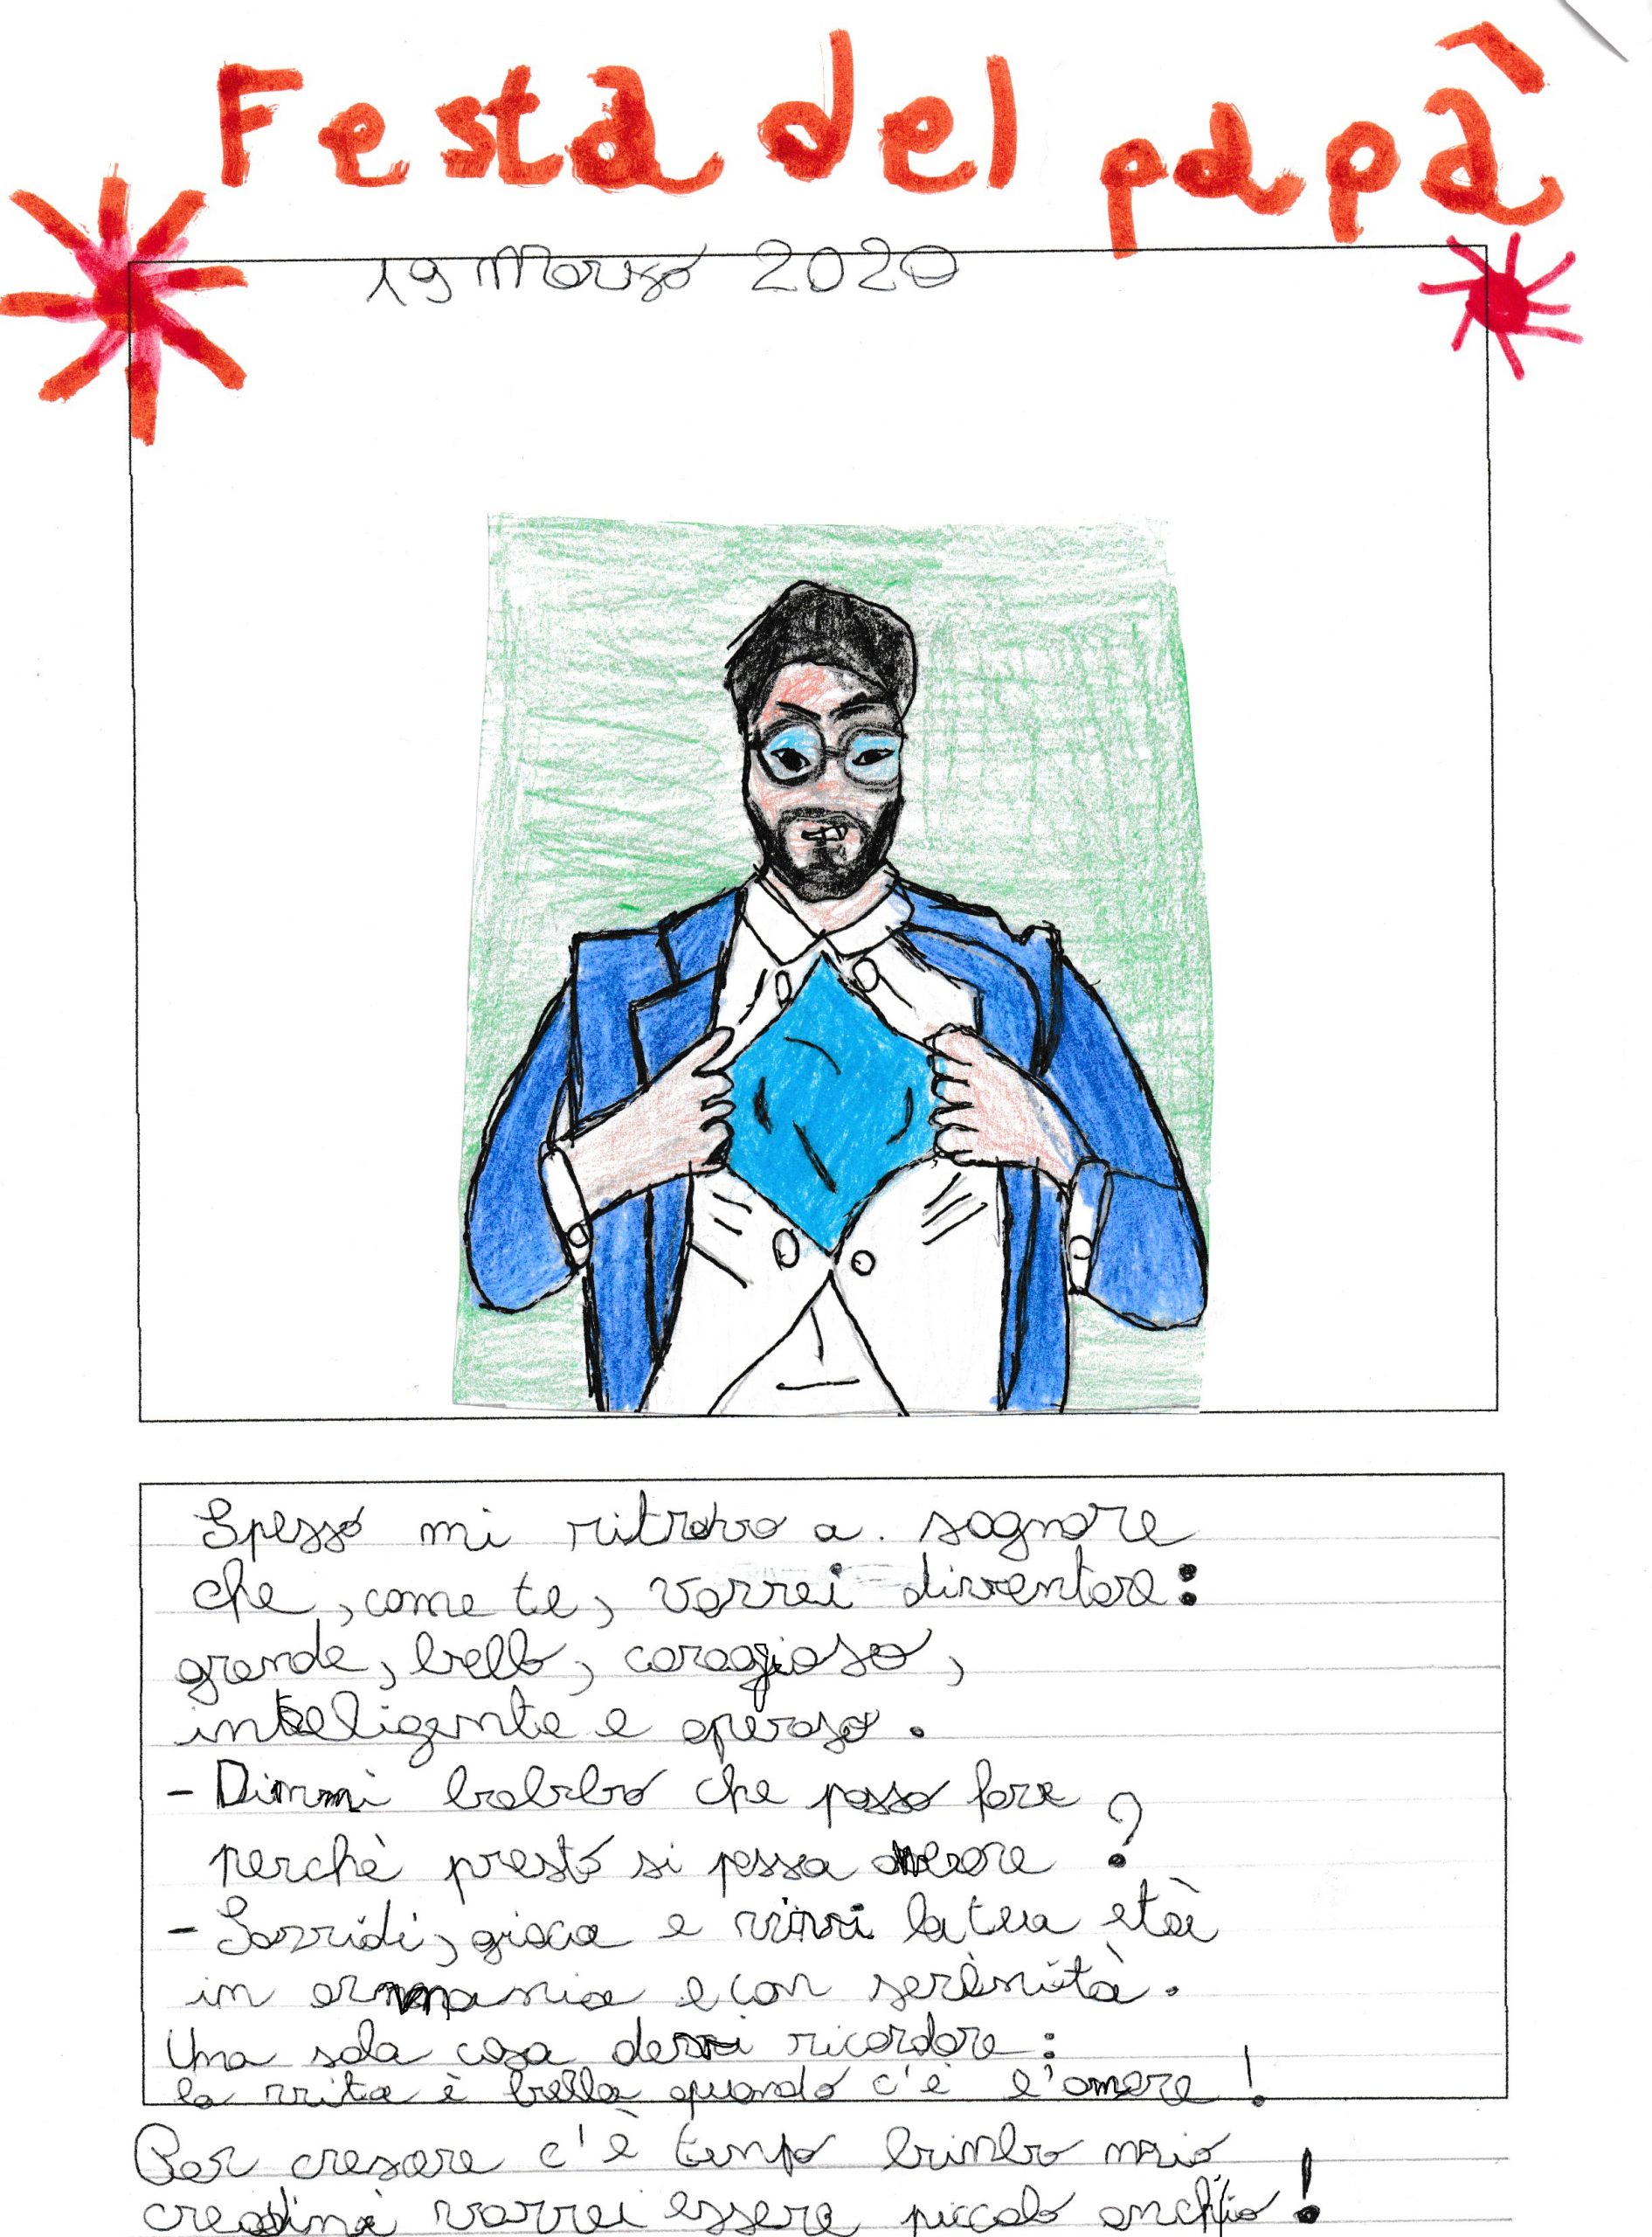 Festa del papà
19 Marzo 2020
Spesso mi ritrovo a. sognare
che, come te, vorrei diventare:
grande, bello, coraggioso,
intelligente e operoso.
- Dimmi babbo che posso fare
perchè presto si possa ?
- Sorridi, gioca e vivi la tua età
in armonia e con serenità.
Una sola cosa devi ricordare:
la vita è bella quando c'è l'amore!
Per crescere c'è tempo bimbo mio
vorrei essere piccolo anch'io!